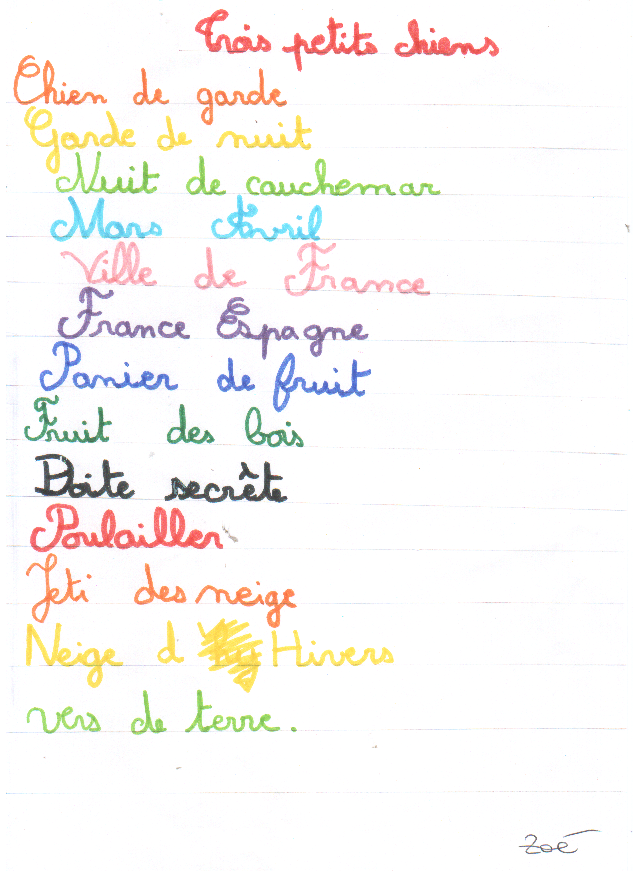 Trois petits chiens
Chien de garde
Garde de nuit
Nuit de cauchemar
Mars Avril
Ville de France
France Espagne
Panier de fruit
Fruit des bois
Boite secrète
Poulailler
Yeti des neige
Neige d Hivers
vers de terre.
Zoé